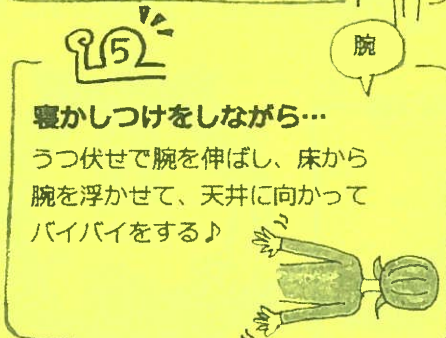 5
腕
寝かしつけをしながら…
うつ伏せで腕を伸ばし、床から
腕を浮かせて、天井に向かって
バイバイをする♪